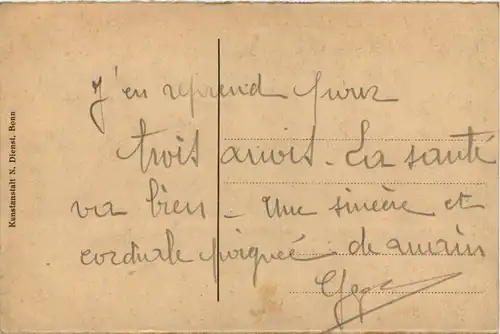 J'en reprend pour
trois mois. La santé
va bien - Une sincère et
cordiale poignée de main
Kunstanstalt N. Dienst, Bonn